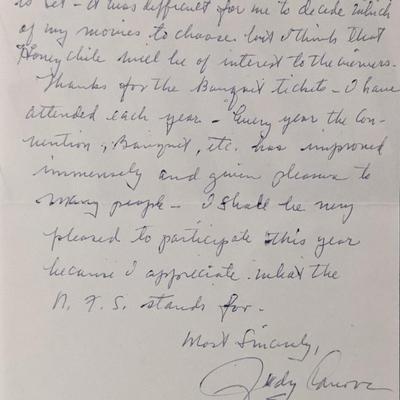 is set - it was difficult for me to decide which
of my movies to choose but I think that
Honeychile will be of interest to the viewers.
Thanks for the Banquet tickets - I have
attended each year - Every year the Con-
vention, Banquet, etc. has improved
immensely and given pleasure to
many people - I shall be very
pleased to participate this year
because I appreciate what the
N. F. S. stands for.
Most Sincerely,
Judy Canova